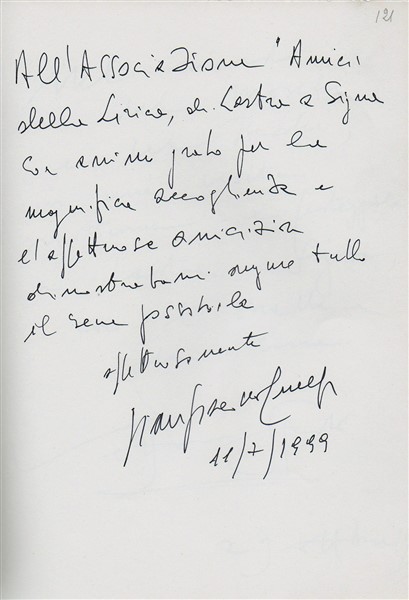 121
All'Associazione "Amici
della Lirica, di Lastra a Signa
con animo grato per la
magnifica accoglienza e
l'affettuosa amicizia
dimostratami auguro tutto
il bene possibile
affettuosamente
11/7/1999